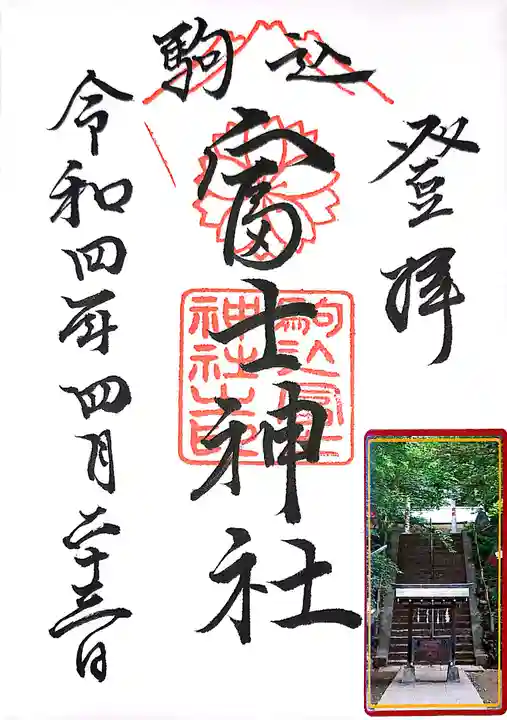 登拝
駒込
富士神社
令和四年四月二十三日
駒込富士
神社